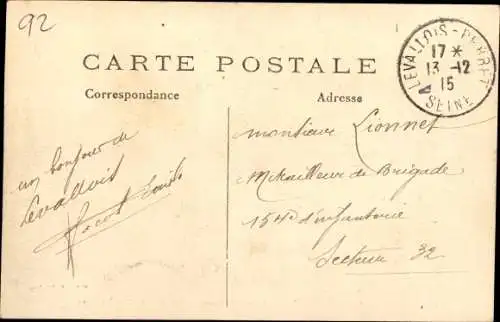 92
CARTE POSTALE
Correspondance
Adresse
LEVALLOIS-PERRET
17 *
13 -12
15
SEINE
un bonjour de
Levallois
monsieur Lionnet
Mitrailleur de Brigade
154e d'infanterie
Secteur 32